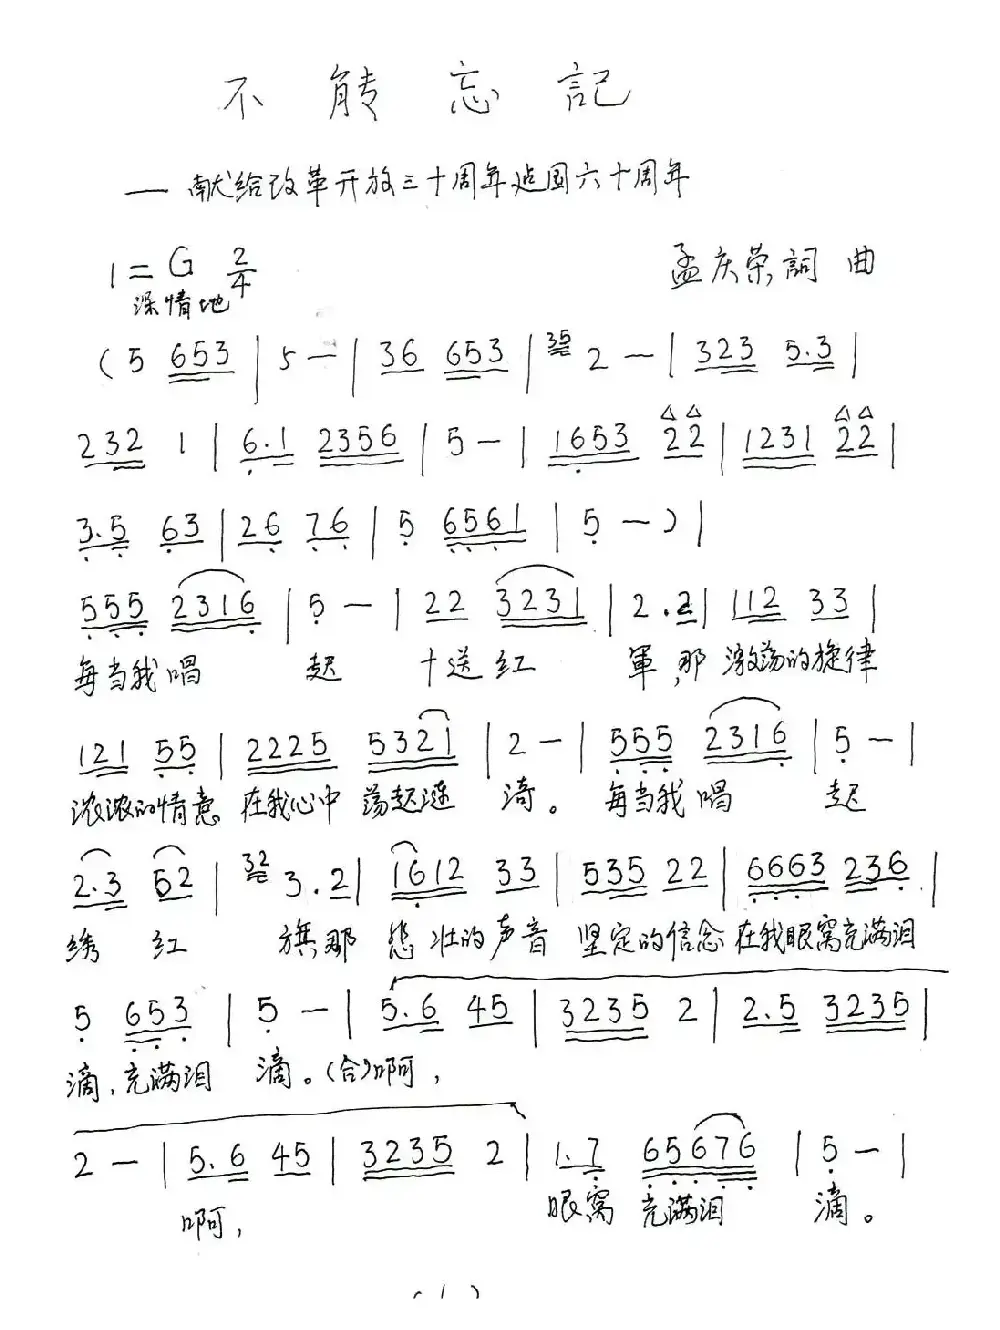 不能忘記
— 献给改革开放三十周年建国六十周年
1=G 2/4 孟庆荣詞 曲
深情地
(5 653 | 5 — | 36 653 | 35 2 — | 323 5.3 |
232 1 | 6.1 2356 | 5 — | 1653 22 | 1231 22 |
3.5 63 | 26 76 | 5 6561 | 5 —) |
555 2316 | 5 — | 22 3231 | 2.2 | 112 33 |
每当我唱 起 十送红 軍,那 激荡的旋律
121 55 | 2225 5321 | 2 — | 555 2316 | 5 — |
浓浓的情意 在我心中 荡起涟 漪。 每当我唱 起
2.3 52 | 32 3.2 | 1612 33 | 535 22 | 6663 236 |
绣 红 旗那 悲壮的声音 坚定的信念 在我眼窝充满泪
5 653 | 5 — | 5.6 45 | 3235 2 | 2.5 3235 |
滴,充满泪 滴。(合)啊,
2 — | 5.6 45 | 3235 2 | 1.7 65676 | 5 — |
啊, 眼窝 充满泪 滴。
(1)